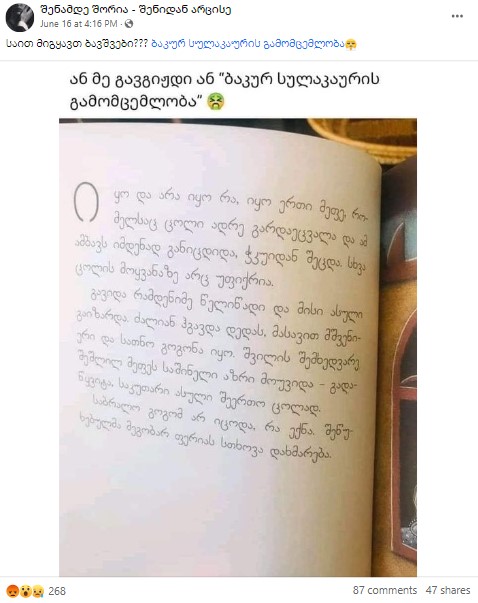 შენამდე შორია - შენიდან არცისე
June 16 at 4:16 PM ·
საით მიგყავთ ბავშვები??? ბაკურ სულაკაურის გამომცემლობა
ან მე გავგიჟდი ან "ბაკურ სულაკაურის
გამომცემლობა"
იყო და არა იყო რა, იყო ერთი მეფე, რო-
მელსაც ცოლი ადრე გარდაეცვალა და ამ
ამბავს იმდენად განიცდიდა, ჭკუიდან შეცდა. სხვა
ცოლის მოყვანაზე არც უფიქრია.
გავიდა რამდენიმე წელიწადი და მისი ასული
გაიზარდა. ძალიან ჰგავდა დედას, მასავით მშვენი-
ერი და სათნო გოგონა იყო. შვილის შემხედვარე
შეშლილ მეფეს საშინელი აზრი მოუვიდა - გადა-
წყვიტა, საკუთარი ასული შეერთო ცოლად.
საბრალო გოგომ არ იცოდა, რა ექნა. შეწუ-
ხებულმა მეგობარ ფერიას სთხოვა დახმარება.
268
87 comments 47 shares